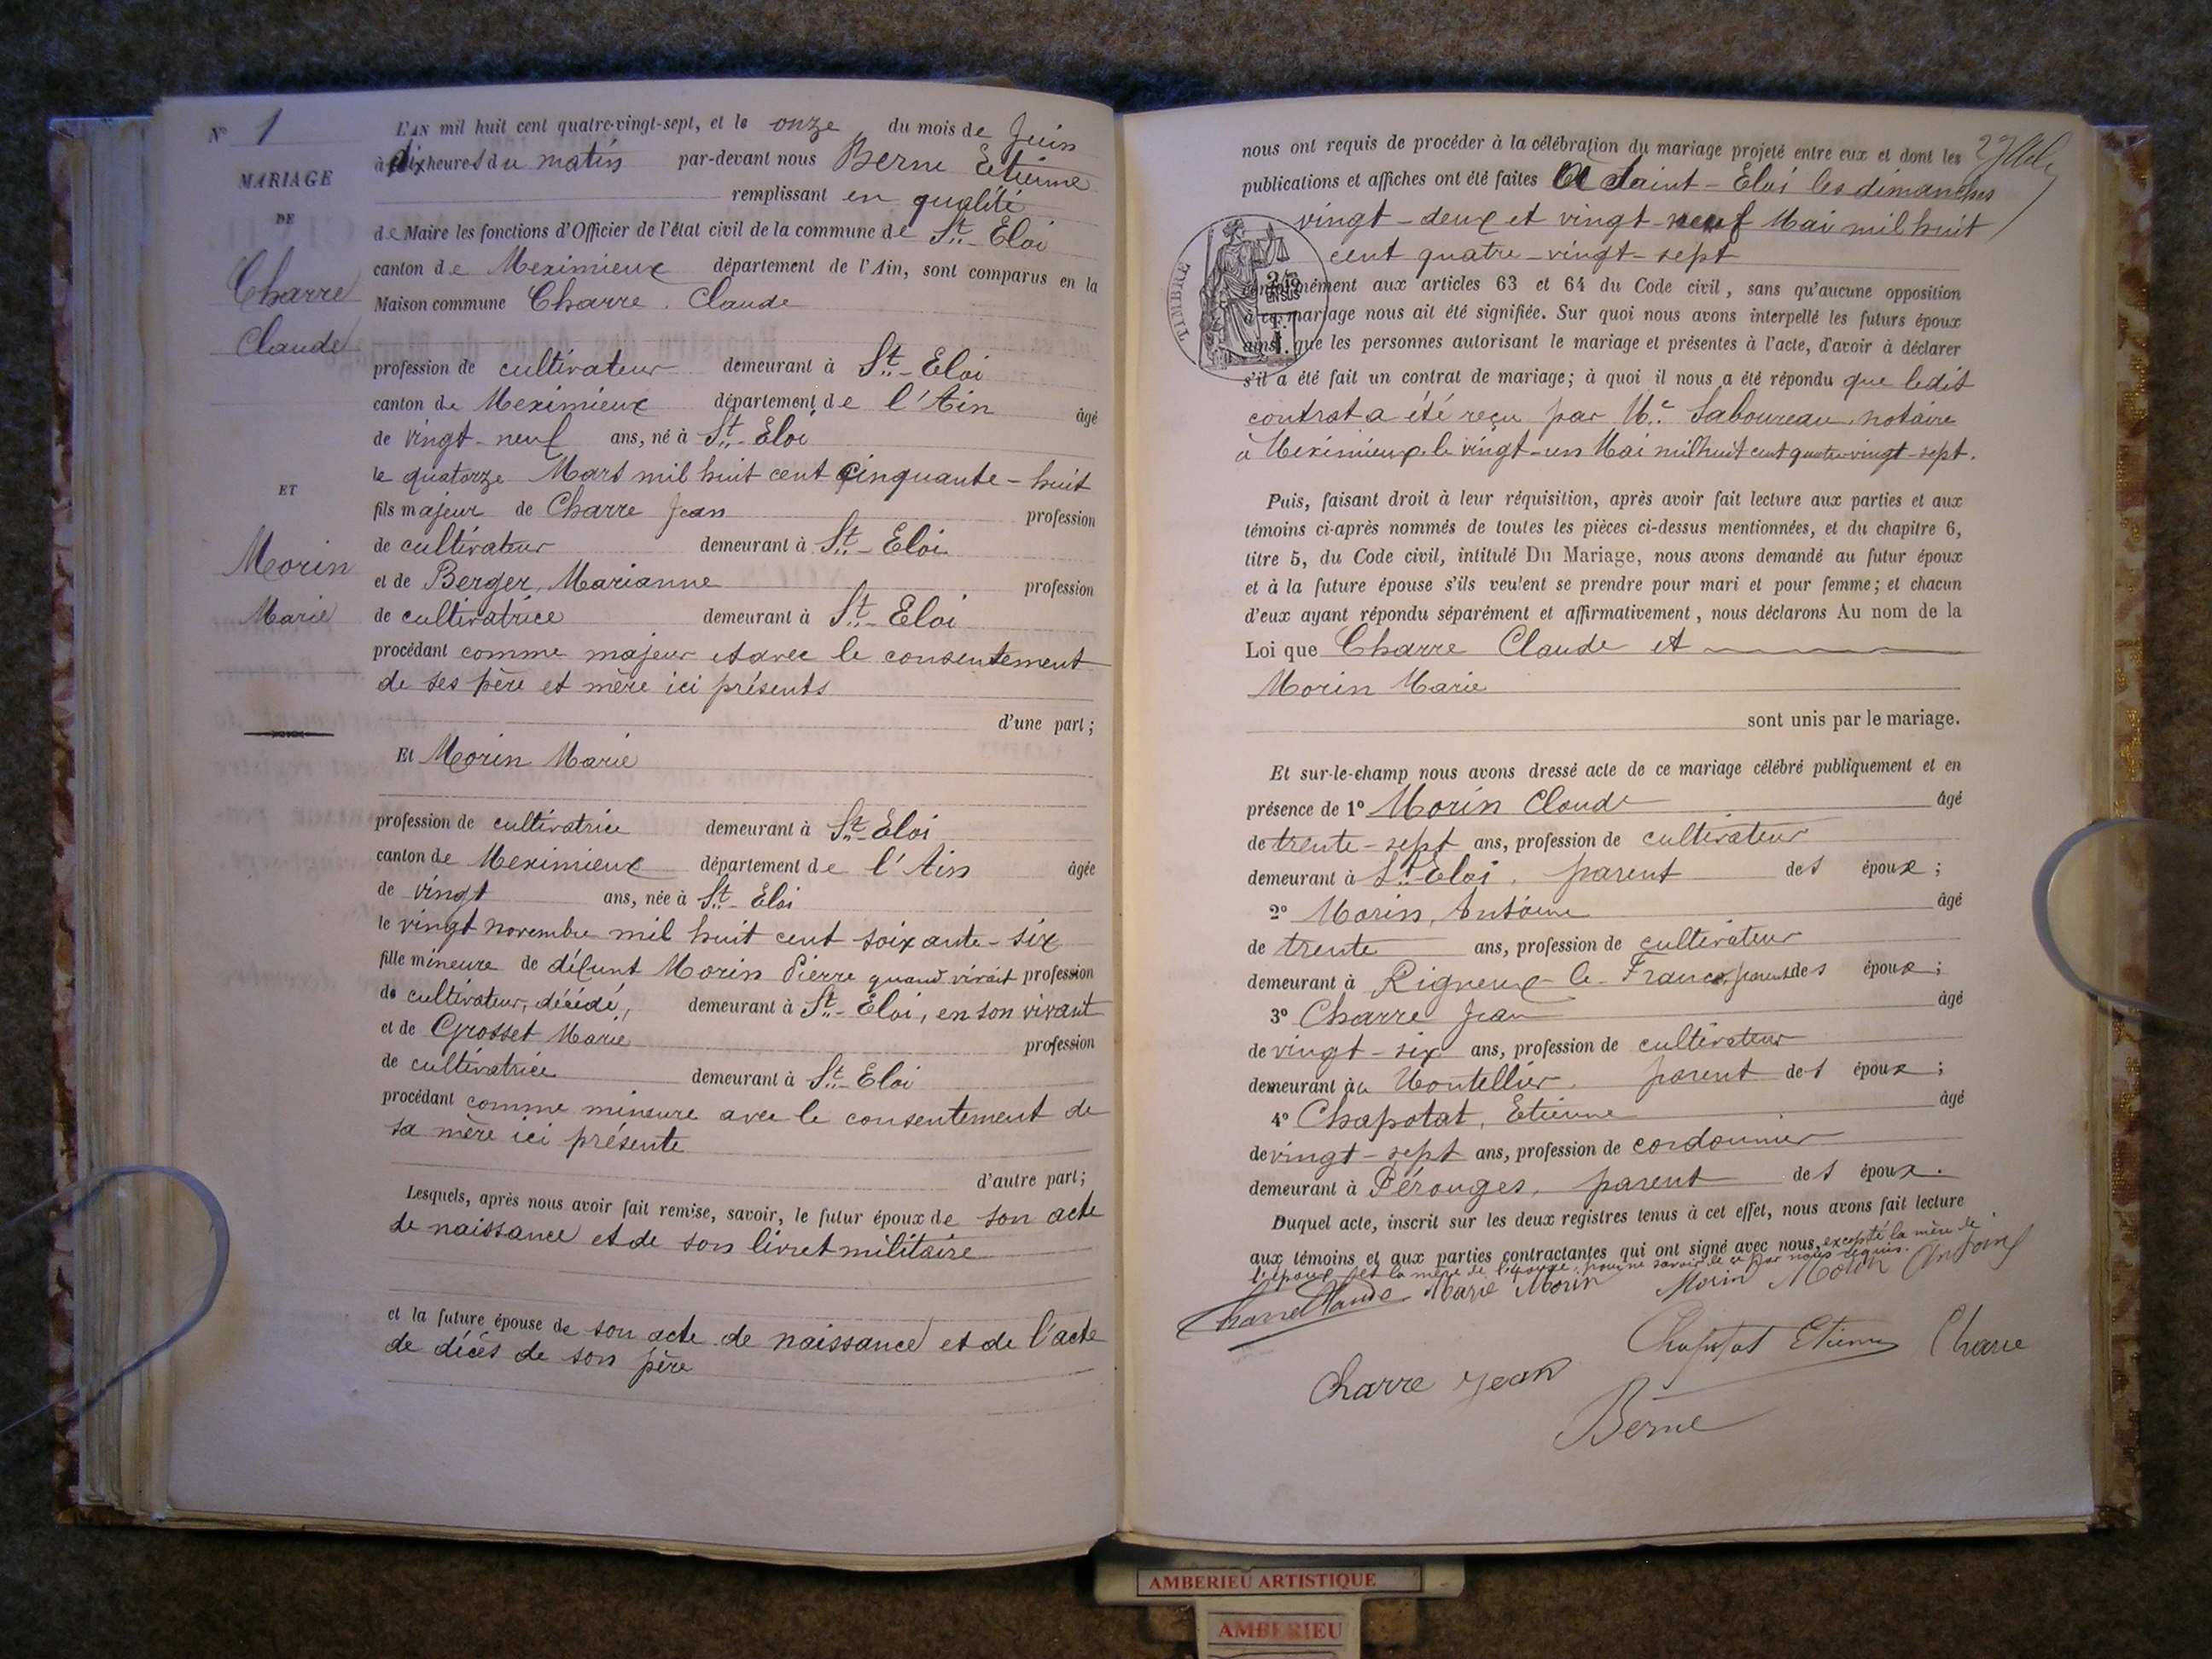 N° 1
MARIAGE
DE
Charre
Claude
ET
Morin
Marie
L'AN mil huit cent quatre-vingt-sept, et le onze du mois de Juin
à dix heures du matin par-devant nous Berne Etienne
remplissant en qualité
de Maire les fonctions d'Officier de l'état civil de la commune de St. Eloi
canton de Meximieux département de l'Ain, sont comparus en la
Maison commune Charre, Claude
profession de cultivateur demeurant à St. Eloi
canton de Meximieux département de l'Ain âgé
de vingt-neuf ans, né à St. Eloi
le quatorze Mars mil huit cent cinquante-huit
fils majeur de Charre Jean profession
de cultivateur demeurant à St. Eloi
et de Berger, Marianne profession
de cultivatrice demeurant à St. Eloi
procédant comme majeur et avec le consentement
de ses père et mère ici présents
d'une part;
Et Morin Marie
profession de cultivatrice demeurant à St. Eloi
canton de Meximieux département de l'Ain âgée
de vingt ans, née à St. Eloi
le vingt novembre mil huit cent soixante-six
fille mineure de défunt Morin Pierre quand vivait profession
de cultivateur, décédé, demeurant à St. Eloi, en son vivant
et de Grosset Marie profession
de cultivatrice demeurant à St. Eloi
procédant comme mineure avec le consentement de
sa mère ici présente
d'autre part;
Lesquels, après nous avoir fait remise, savoir, le futur époux de son acte
de naissance et de son livret militaire
et la future épouse de son acte de naissance et de l'acte
de décès de son père
nous ont requis de procéder à la célébration du mariage projeté entre eux et dont les
publications et affiches ont été faites A Saint-Eloi les dimanches
vingt-deux et vingt-neuf Mai mil huit
cent quatre-vingt-sept
TIMBRE
2/10
EN SUS
conformément aux articles 63 et 64 du Code civil, sans qu'aucune opposition
à ce mariage nous ait été signifiée. Sur quoi nous avons interpellé les futurs époux
ainsi que les personnes autorisant le mariage et présentes à l'acte, d'avoir à déclarer
s'il a été fait un contrat de mariage; à quoi il nous a été répondu que ledit
contrat a été reçu par Me. Saboureau, notaire
à Meximieux, le vingt-un Mai mil huit cent quatre-vingt-sept.
Puis, faisant droit à leur réquisition, après avoir fait lecture aux parties et aux
témoins ci-après nommés de toutes les pièces ci-dessus mentionnées, et du chapitre 6,
titre 5, du Code civil, intitulé Du Mariage, nous avons demandé au futur époux
et à la future épouse s'ils veulent se prendre pour mari et pour femme; et chacun
d'eux ayant répondu séparément et affirmativement, nous déclarons Au nom de la
Loi que Charre Claude et
Morin Marie
sont unis par le mariage.
Et sur-le-champ nous avons dressé acte de ce mariage célébré publiquement et en
présence de 1° Morin Claude âgé
de trente-sept ans, profession de cultivateur
demeurant à St. Eloi, parent des époux;
2° Morin, Antoine âgé
de trente ans, profession de cultivateur
demeurant à Rigneux-le-Franc, parent des époux;
3° Charre Jean âgé
de vingt-six ans, profession de cultivateur
demeurant au Montellier, parent des époux;
4° Chapotat, Etienne âgé
de vingt-sept ans, profession de cordonnier
demeurant à Pérouges, parent des époux.
Duquel acte, inscrit sur les deux registres tenus à cet effet, nous avons fait lecture
aux témoins et aux parties contractantes qui ont signé avec nous, excepté la mère de
l'époux et la mère de l'épouse, pour ne savoir de ce par nous requis.
Charre Claude Marie Morin Morin Morin Antoine
Chapotat Etienne Charre
Charre Jean
Berne
AMBERIEU ARTISTIQUE
AMBERIEU